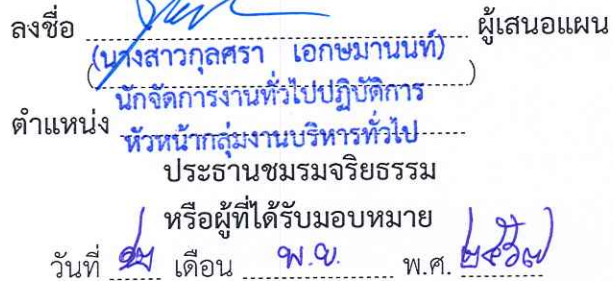 ลงชื่อ ผู้เสนอแผน
(นางสาวกุลศรา เอกษมานนท์)
นักจัดการงานทั่วไปปฏิบัติการ
ตำแหน่ง หัวหน้ากลุ่มงานบริหารทั่วไป
ประธานชมรมจริยธรรม
หรือผู้ที่ได้รับมอบหมาย
วันที่ เดือน พ.ย. พ.ศ. ๒๕๖๗